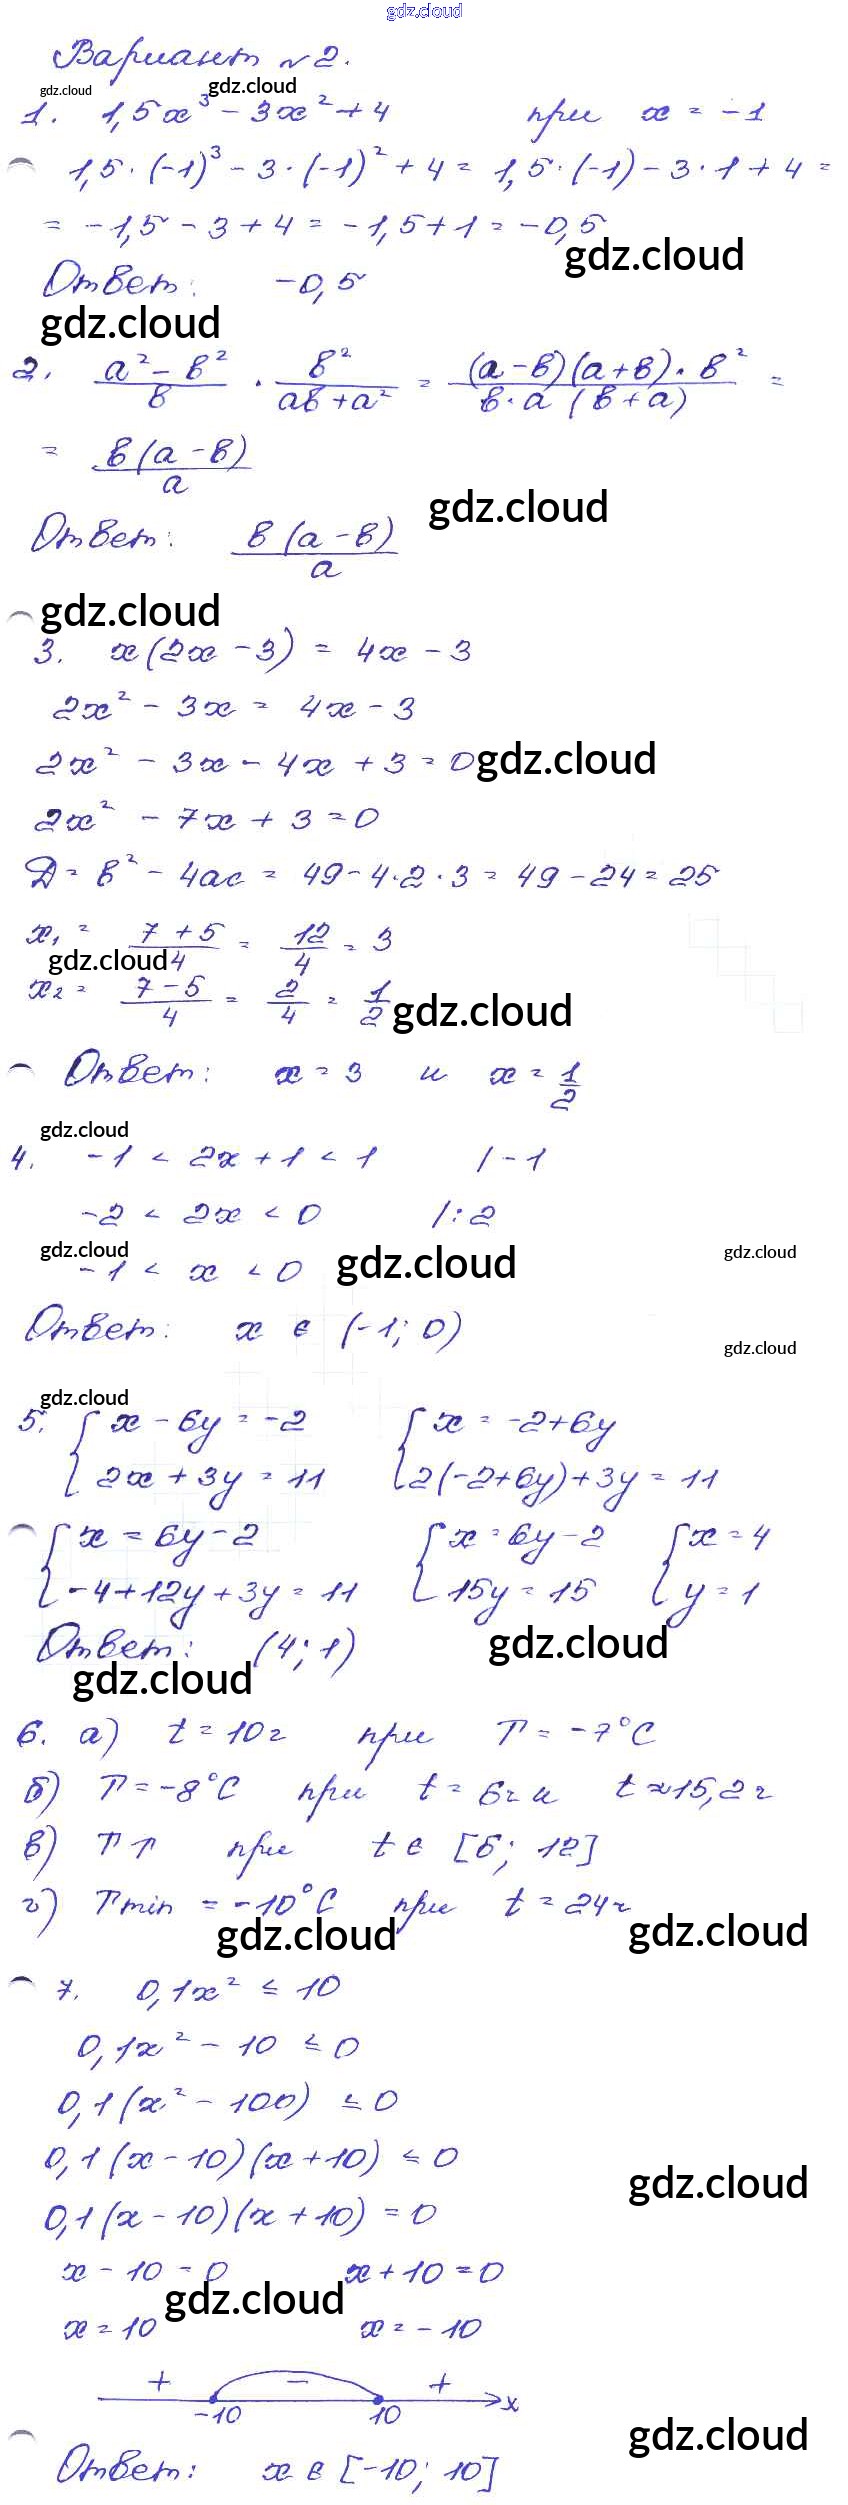 gdz.cloud
Вариант № 2.
gdz.cloud gdz.cloud
1. 1,5x³ - 3x² + 4 при x = -1
1,5·(-1)³ - 3·(-1)² + 4 = 1,5·(-1) - 3·1 + 4 =
= -1,5 - 3 + 4 = -1,5 + 1 = -0,5
gdz.cloud
Ответ: -0,5
gdz.cloud
2. (a² - b²)/b · b²/(ab + a²) = ((a - b)(a + b)·b²)/(b·a(b + a)) =
= b(a - b)/a
gdz.cloud
Ответ: b(a - b)/a
gdz.cloud
3. x(2x - 3) = 4x - 3
2x² - 3x = 4x - 3
2x² - 3x - 4x + 3 = 0
gdz.cloud
2x² - 7x + 3 = 0
Д = b² - 4ac = 49 - 4·2·3 = 49 - 24 = 25
x₁ = (7 + 5)/4 = 12/4 = 3
gdz.cloud
x₂ = (7 - 5)/4 = 2/4 = 1/2
gdz.cloud
Ответ: x = 3 и x = 1/2
gdz.cloud
4. -1 < 2x + 1 < 1 / -1
-2 < 2x < 0 /:2
gdz.cloud gdz.cloud gdz.cloud
-1 < x < 0
Ответ: x ∈ (-1; 0)
gdz.cloud
gdz.cloud
5. { x - 6y = -2 { x = -2 + 6y
2x + 3y = 11 2(-2 + 6y) + 3y = 11
{ x = 6y - 2 { x = 6y - 2 { x = 4
-4 + 12y + 3y = 11 15y = 15 y = 1
Ответ: (4; 1)
gdz.cloud
gdz.cloud
6. а) t = 10ч при T = -7°C
б) T = -8°C при t = 6ч и t ≈ 15,2ч
в) T↑ при t ∈ [6; 12]
г) Tmin = -10°C при t = 24ч
gdz.cloud gdz.cloud
7. 0,1x² ≤ 10
0,1x² - 10 ≤ 0
0,1(x² - 100) ≤ 0
0,1(x - 10)(x + 10) ≤ 0
gdz.cloud
0,1(x - 10)(x + 10) = 0
x - 10 = 0 x + 10 = 0
gdz.cloud
x = 10 x = -10
+ - +
-10 10 x
gdz.cloud
Ответ: x ∈ [-10; 10]